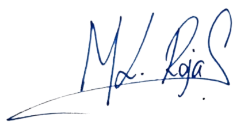 ML. Rojas